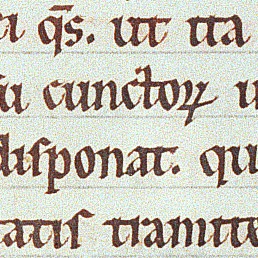 q̄s. ut ita
cunctoꝝ
disponat. qu
tatis tramite